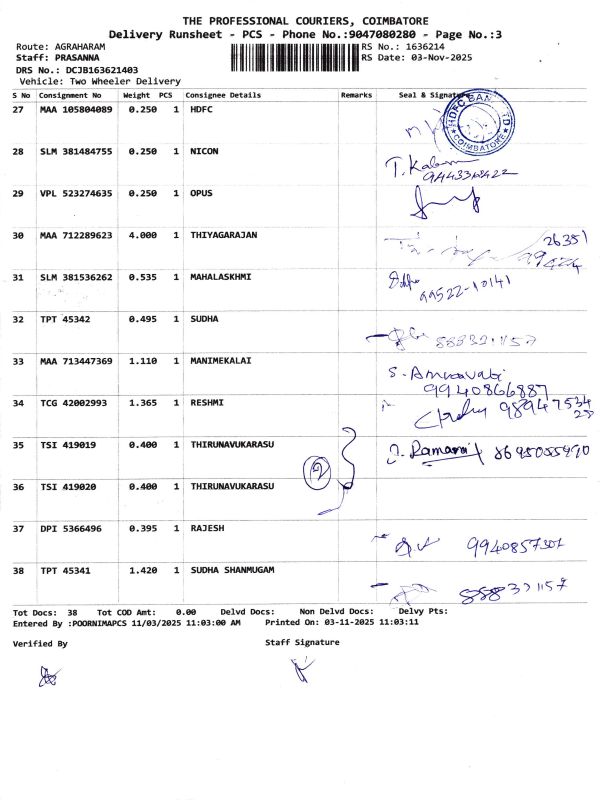 THE PROFESSIONAL COURIERS, COIMBATORE
Delivery Runsheet - PCS - Phone No.:9047080280 - Page No.:3
Route: AGRAHARAM RS No.: 1636214
Staff: PRASANNA RS Date: 03-Nov-2025
DRS No.: DCJB163621403
Vehicle: Two Wheeler Delivery
S No Consignment No Weight PCS Consignee Details Remarks Seal & Signature
27 MAA 105804089 0.250 1 HDFC
HDFC BAN LTD COIMBATORE
28 SLM 381484755 0.250 1 NICON
29 VPL 523274635 0.250 1 OPUS
30 MAA 712289623 4.000 1 THIYAGARAJAN 26351
31 SLM 381536262 0.535 1 MAHALASKHMI
99522-10141
32 TPT 45342 0.495 1 SUDHA
33 MAA 713447369 1.110 1 MANIMEKALAI S. Amravati
9940866887
34 TCG 42002993 1.365 1 RESHMI
35 TSI 419019 0.400 1 THIRUNAVUKARASU Ramani 8695055490
2
36 TSI 419020 0.400 1 THIRUNAVUKARASU
37 DPI 5366496 0.395 1 RAJESH
9940857301
38 TPT 45341 1.420 1 SUDHA SHANMUGAM
Tot Docs: 38 Tot COD Amt: 0.00 Delvd Docs: Non Delvd Docs: Delvy Pts:
Entered By :POORNIMAPCS 11/03/2025 11:03:00 AM Printed On: 03-11-2025 11:03:11
Verified By Staff Signature